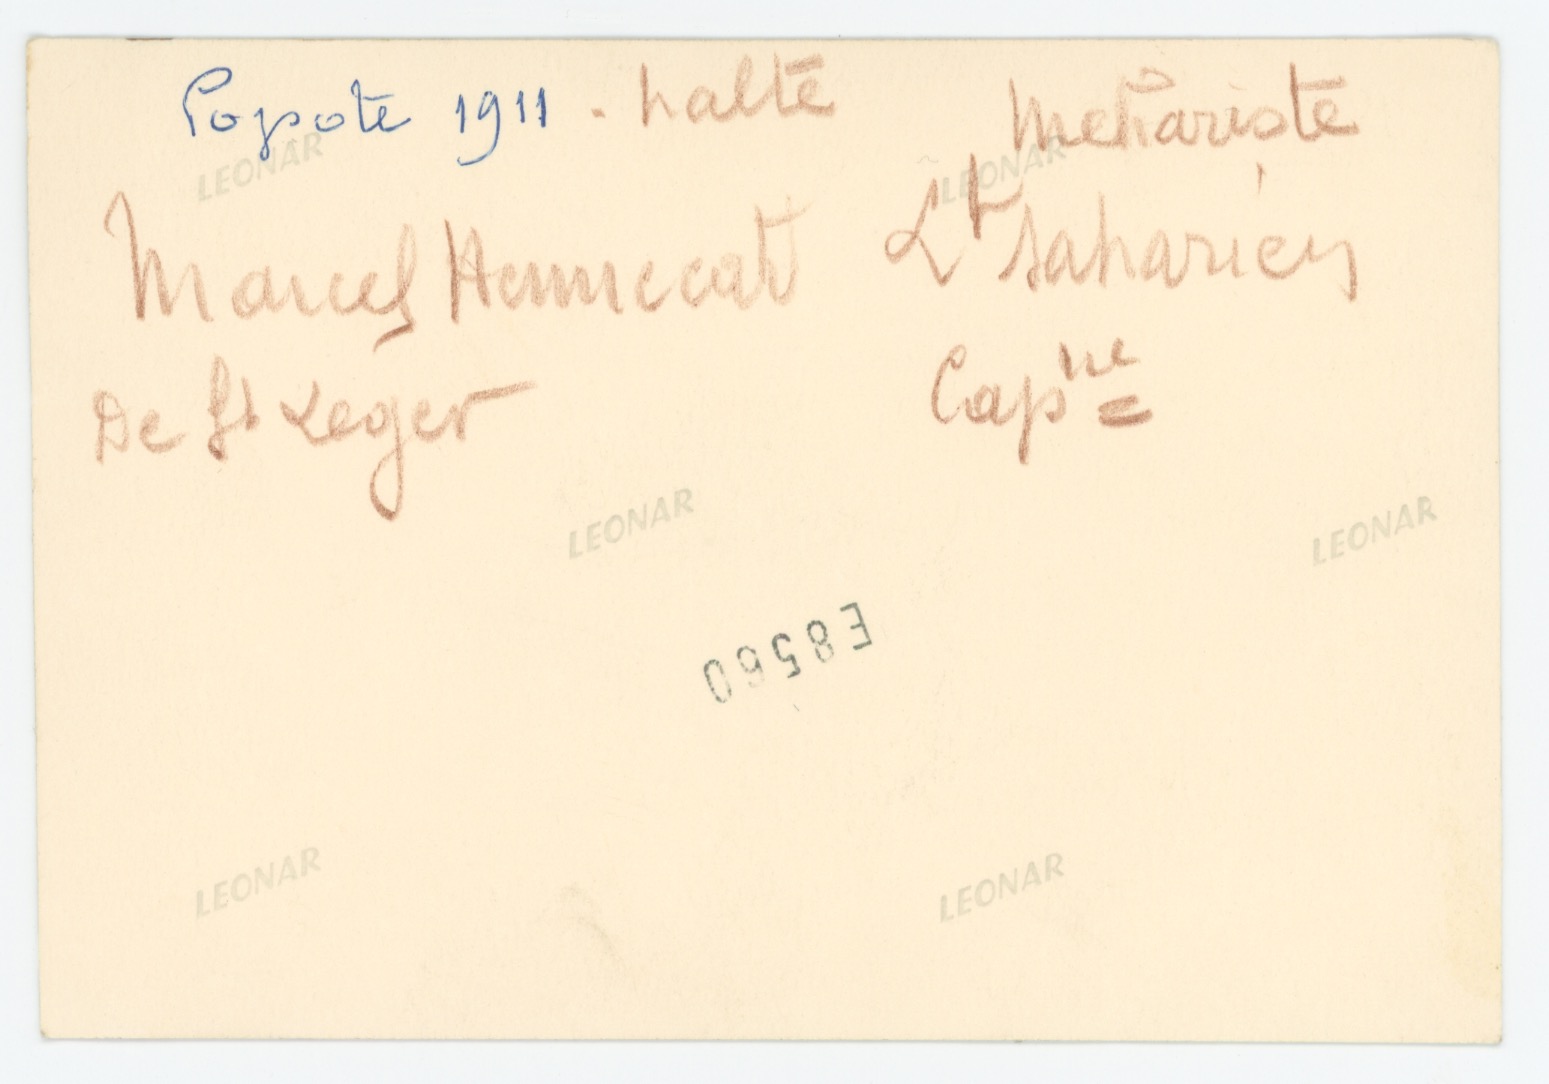 Popote 1911 . halte
Mehariste
Marcel Hennecart
Lt saharien
De St Léger
Capne
LEONAR
LEONAR
LEONAR
LEONAR
E8560
LEONAR
LEONAR